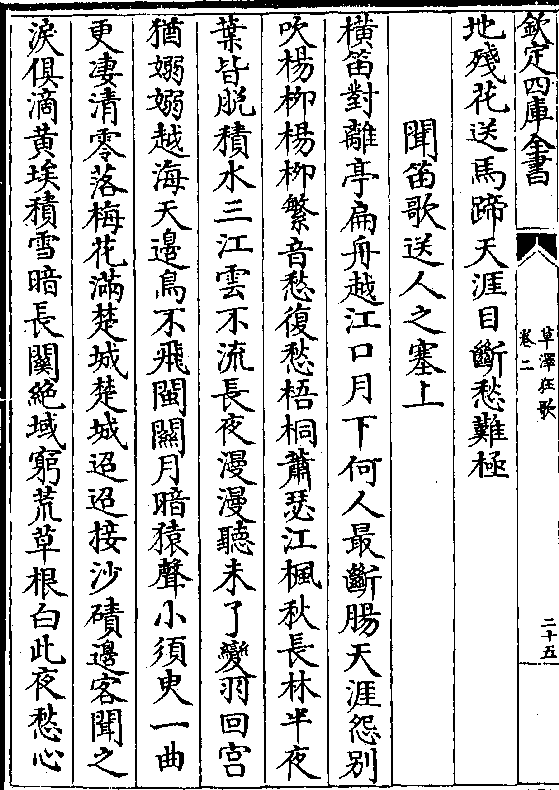 欽定四庫全書
草澤狂歌
卷二
二十五
地殘花送馬蹄天涯目斷愁難極
聞笛歌送人之塞上
橫笛對離亭扁舟越江口月下何人最斷腸天涯怨别
吹楊柳楊柳繁音愁復愁梧桐蕭瑟江楓秋長林半夜
葉皆脱積水三江雲不流長夜漫漫聽未了變羽回宫
猶嫋嫋越海天邊鳥不飛閩關月暗猿聲小須臾一曲
更凄清零落梅花滿楚城楚城迢迢接沙磧邊客聞之
淚俱滴黄埃積雪暗長關絶域窮荒草根白此夜愁心